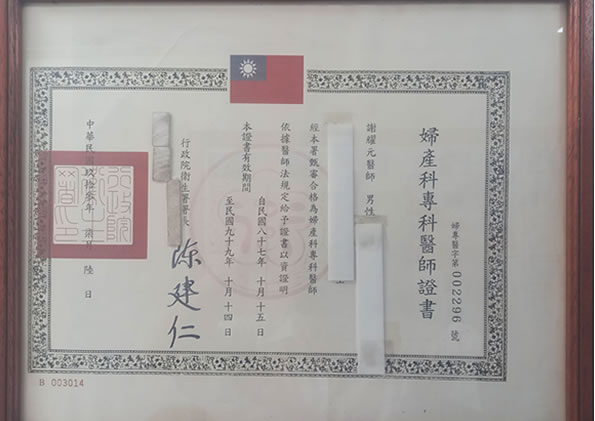 婦產科專科醫師證書
婦專醫字第002296號
謝耀元醫師 男性
經本署甄審合格為婦產科專科醫師
依據醫師法規定給予證書以資證明
本證書有效期間
自民國八十七年 十月 十五日
至民國九十九年 十月 十四日
行政院衛生署署長
陳建仁
中華民國
日
B 003014